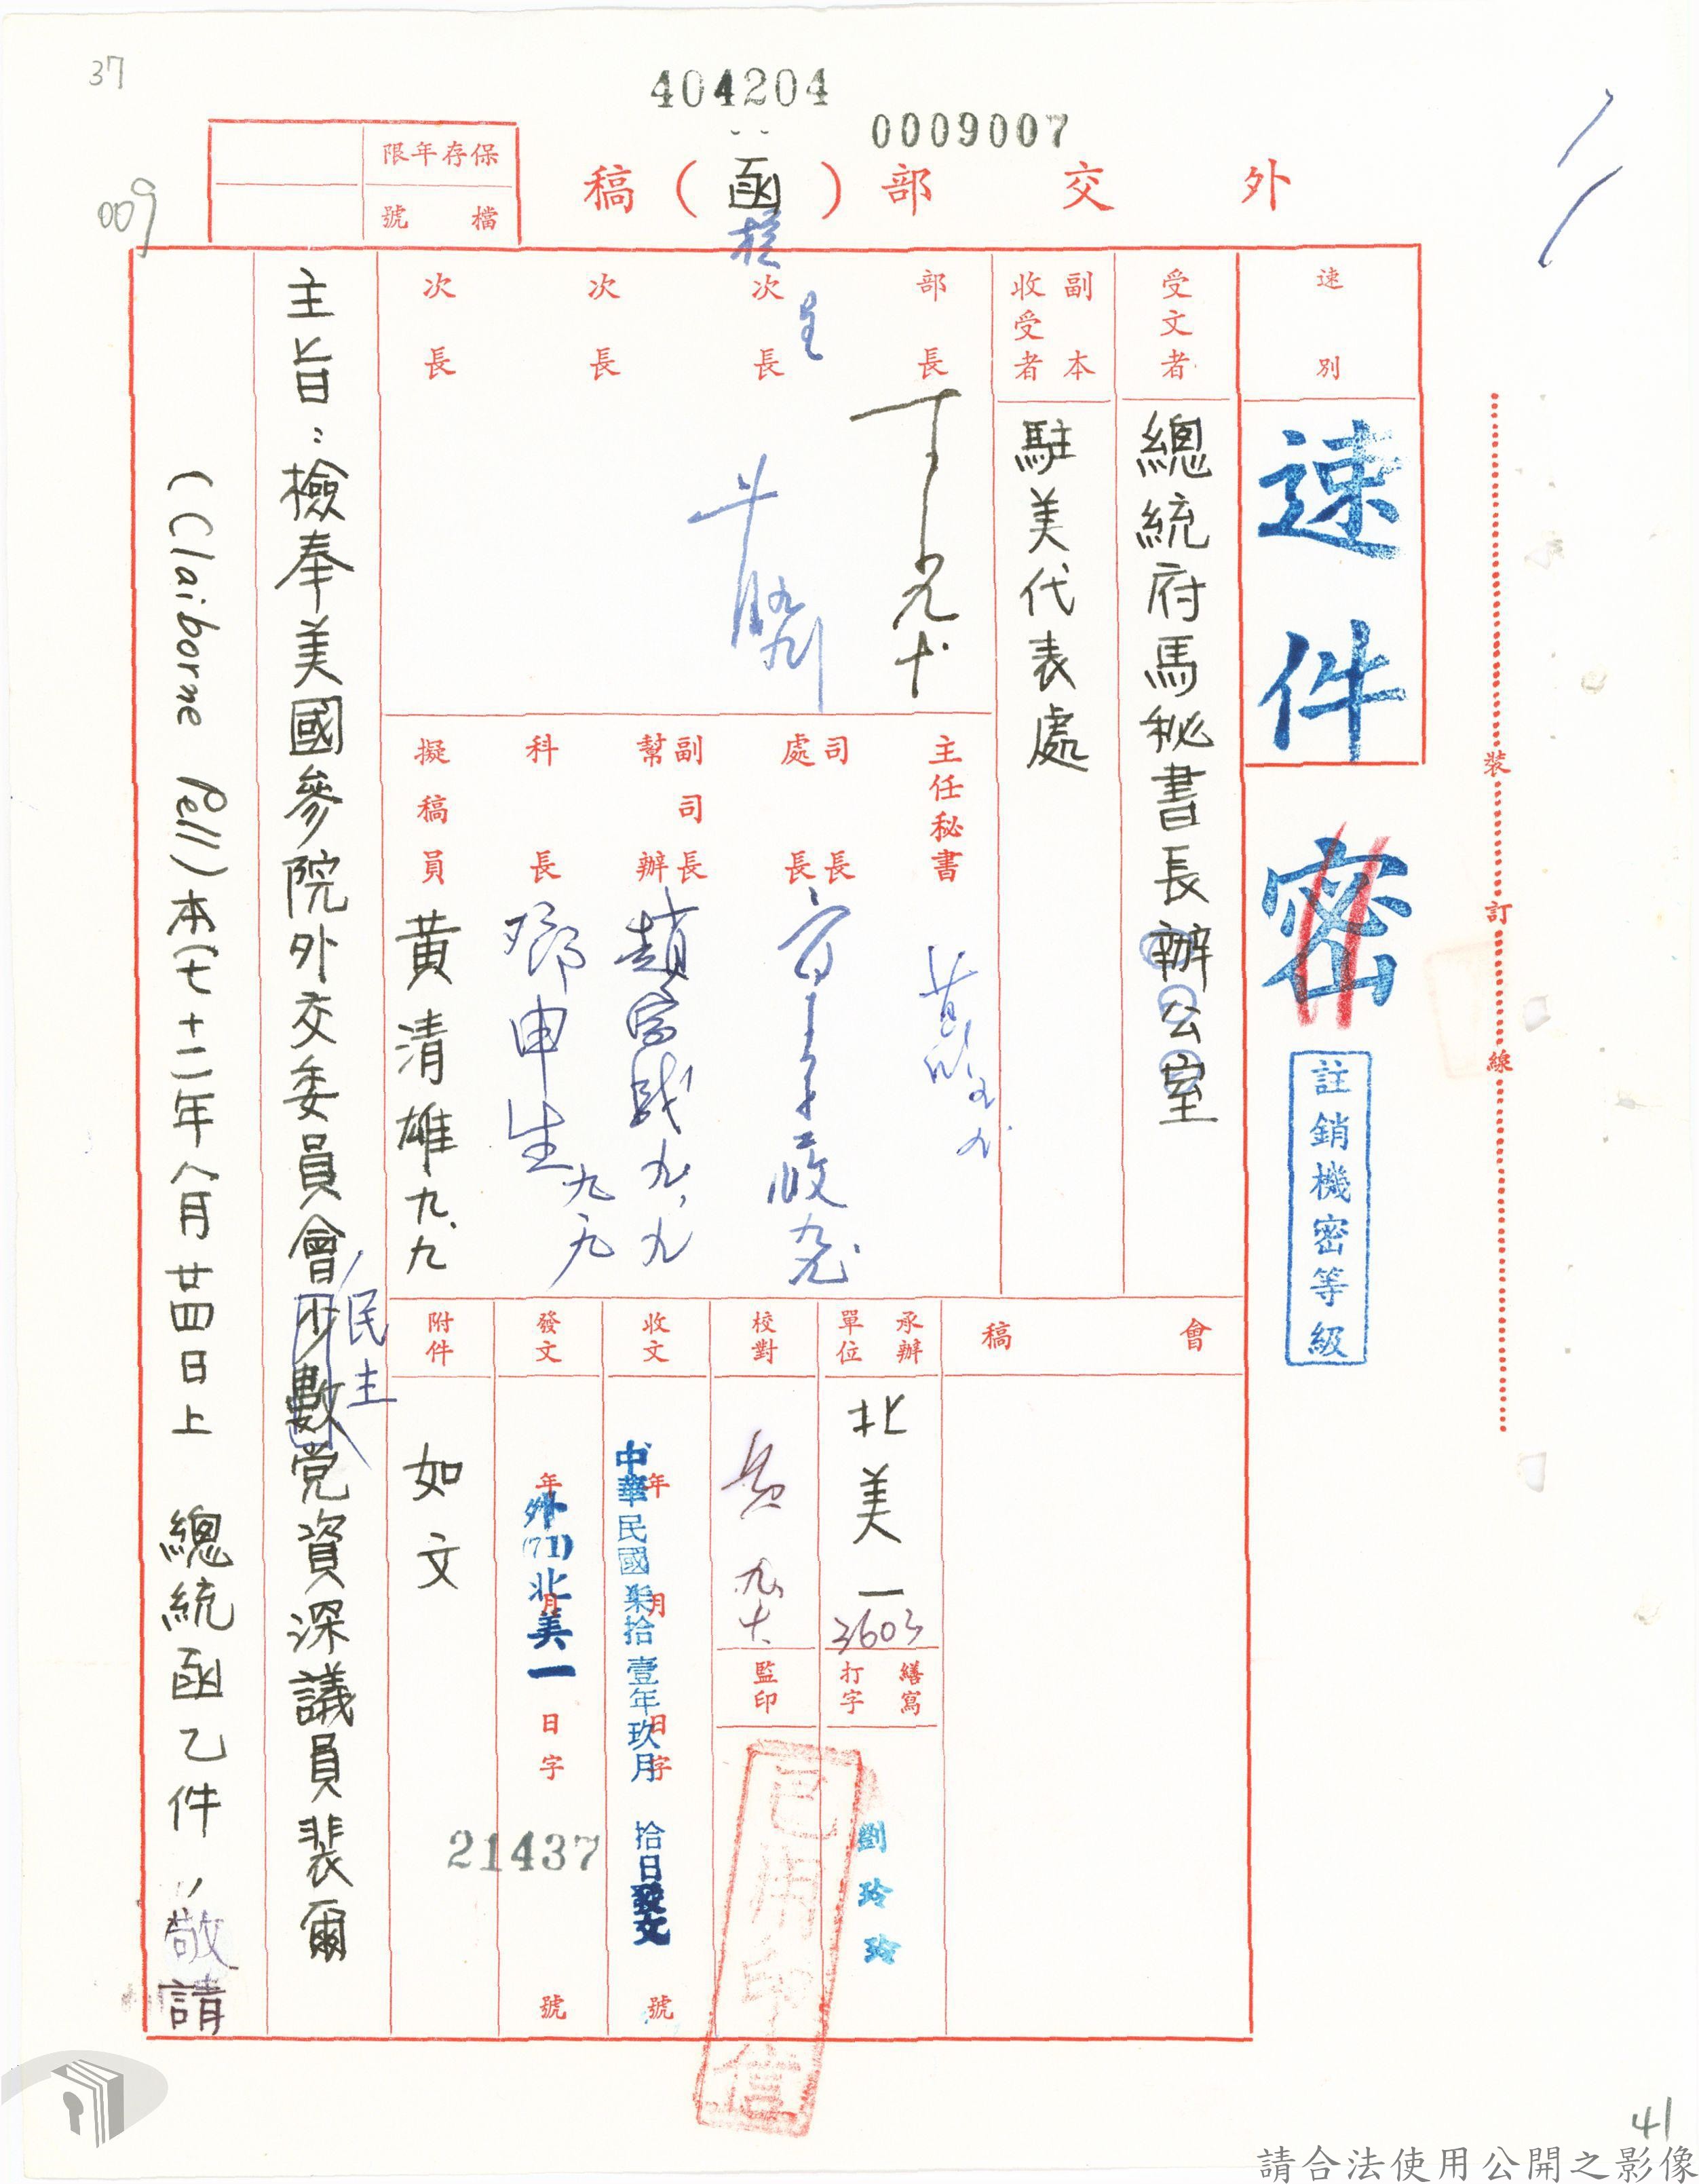 37
404204
0009007
009
外交部（函）稿
保存年限
檔號
速別
速件
密
註銷機密等級
裝
訂
線
受文者
總統府馬秘書長辦公室
副本
收受者
駐美代表處
部長
次長
次長
次長
主任秘書
司長
處長
副司長
幫辦
趙
科長
鄧申生九九
擬稿員
黃清雄九、九
會稿
承辦單位
北美一
3603
繕寫
打字
劉玲玲
校對
九、十
監印
已用印信
收文
年月日字號
中華民國柒拾壹年玖月拾日發文
發文
年月日字號
外(71)北美一
21437
附件
如文
主旨：檢奉美國參院外交委員會少數党資深議員裴爾
民主
(Claiborne Pell)本(七十二年八月廿四日上 總統函乙件，敬請
41
請合法使用公開之影像